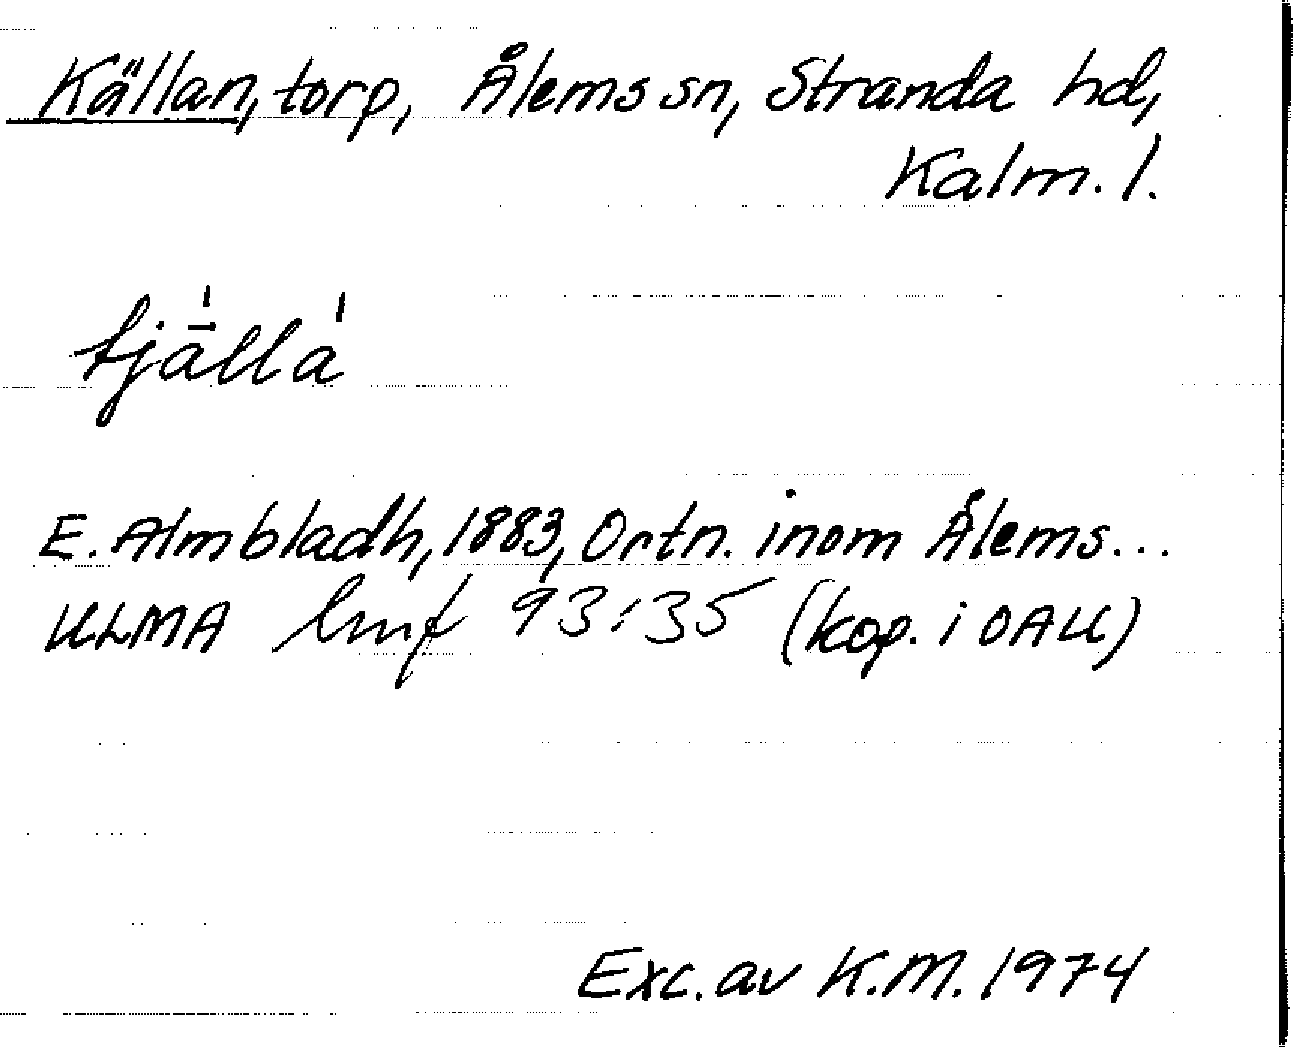 Källan, torp, Ålems sn, Stranda hd,
Kalm. l.
tjǟ́llá
E. Almbladh, 1883, Ortn. inom Ålems...
ULMA lmf 93:35 (kop. i OAU)
Exc. av K.M. 1974